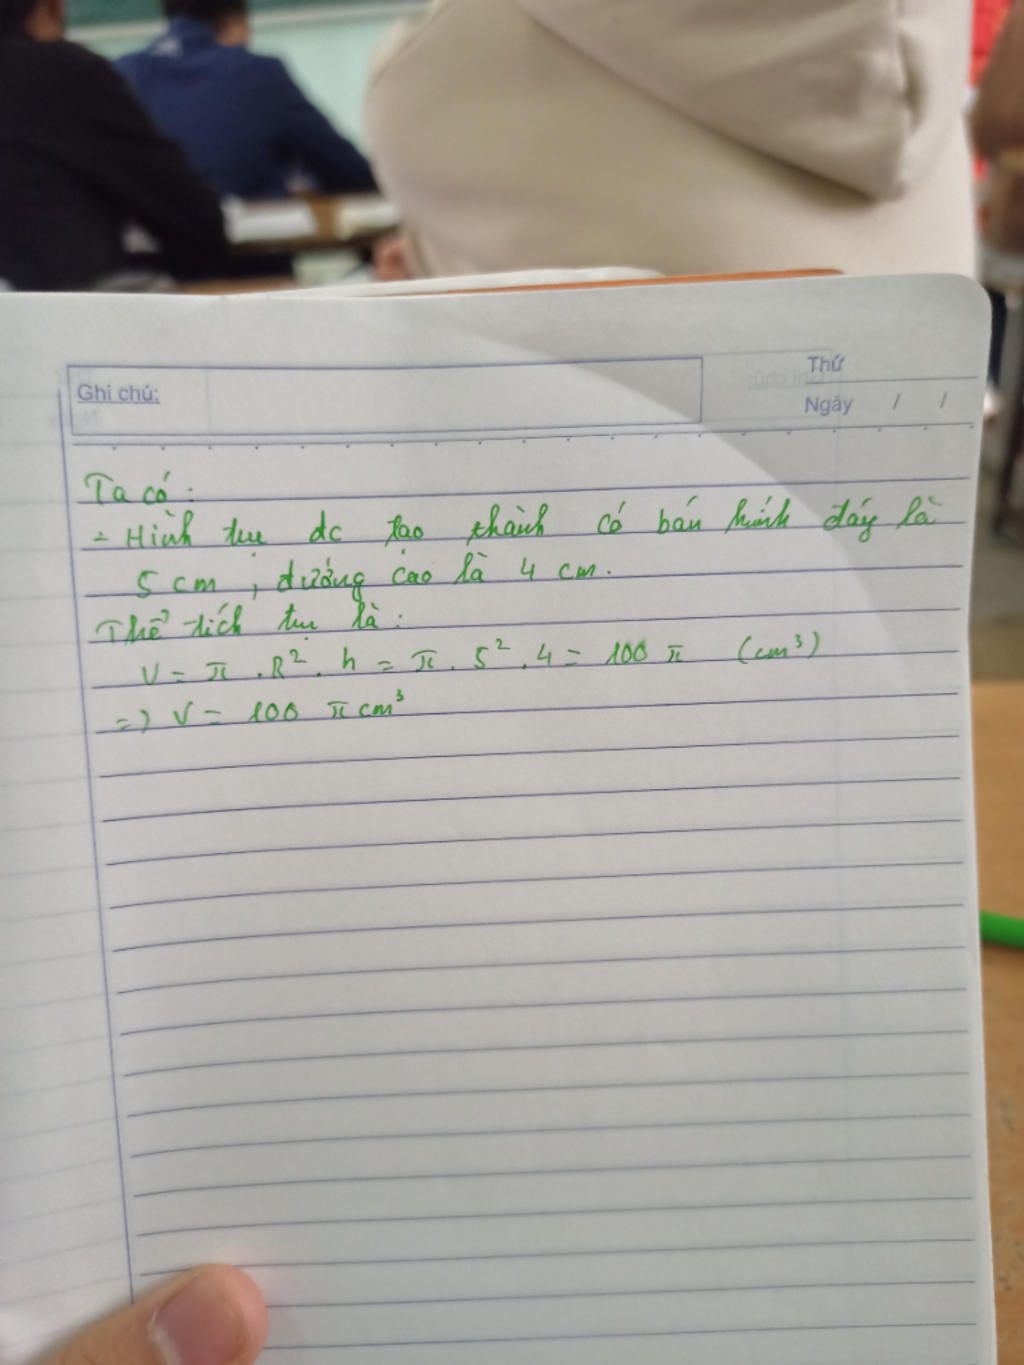 Ghi chú:
Thứ
Ngày / /
Ta có:
- Hình trụ đc tạo thành có bán kính đáy là
5 cm, đường cao là 4 cm.
Thể tích trụ là:
V = π . R² . h = π . 5² . 4 = 100 π (cm³)
=> V = 100 π cm³